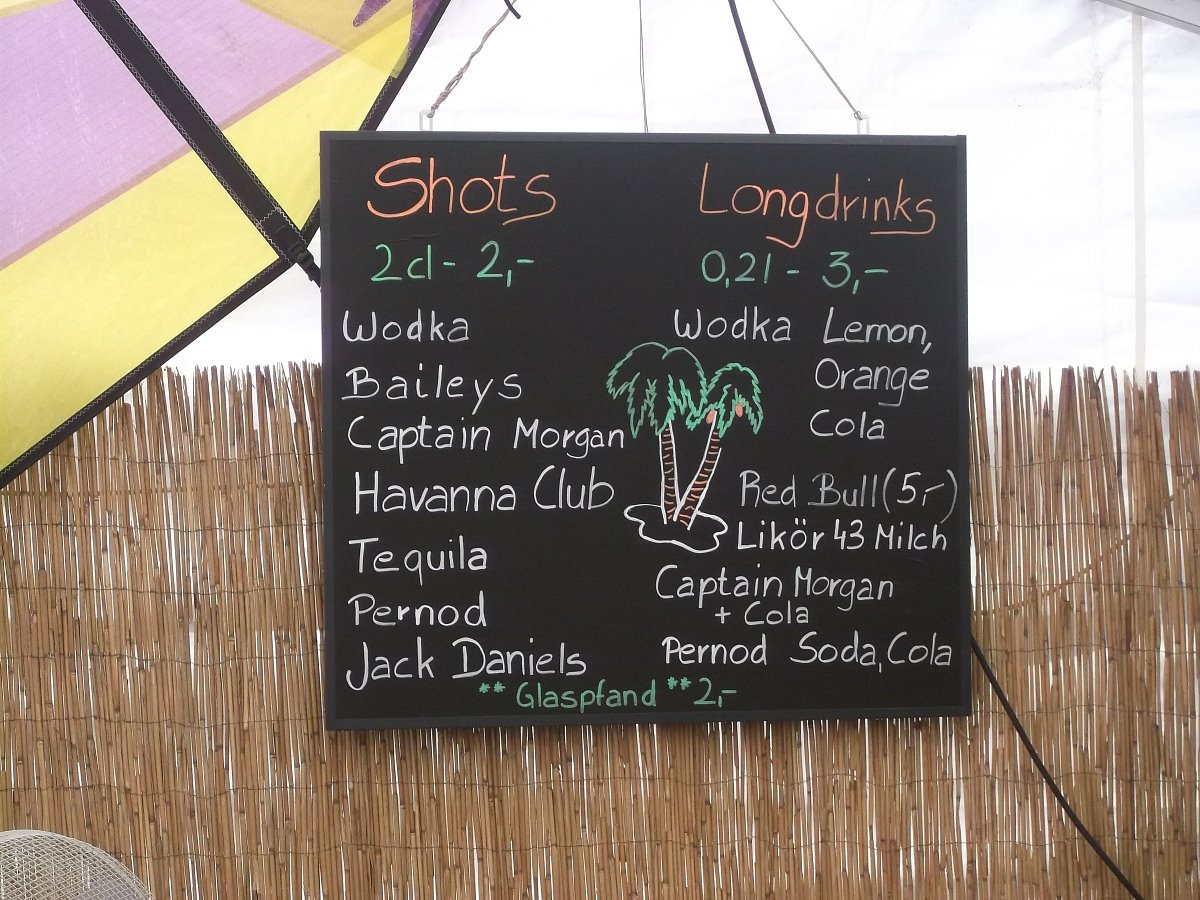 Shots
2cl - 2,-
Wodka
Baileys
Captain Morgan
Havanna Club
Tequila
Pernod
Jack Daniels
Longdrinks
0,2l - 3,-
Wodka Lemon,
Orange
Cola
Red Bull (5,-)
Likör 43 Milch
Captain Morgan
+ Cola
Pernod Soda, Cola
** Glaspfand ** 2,-